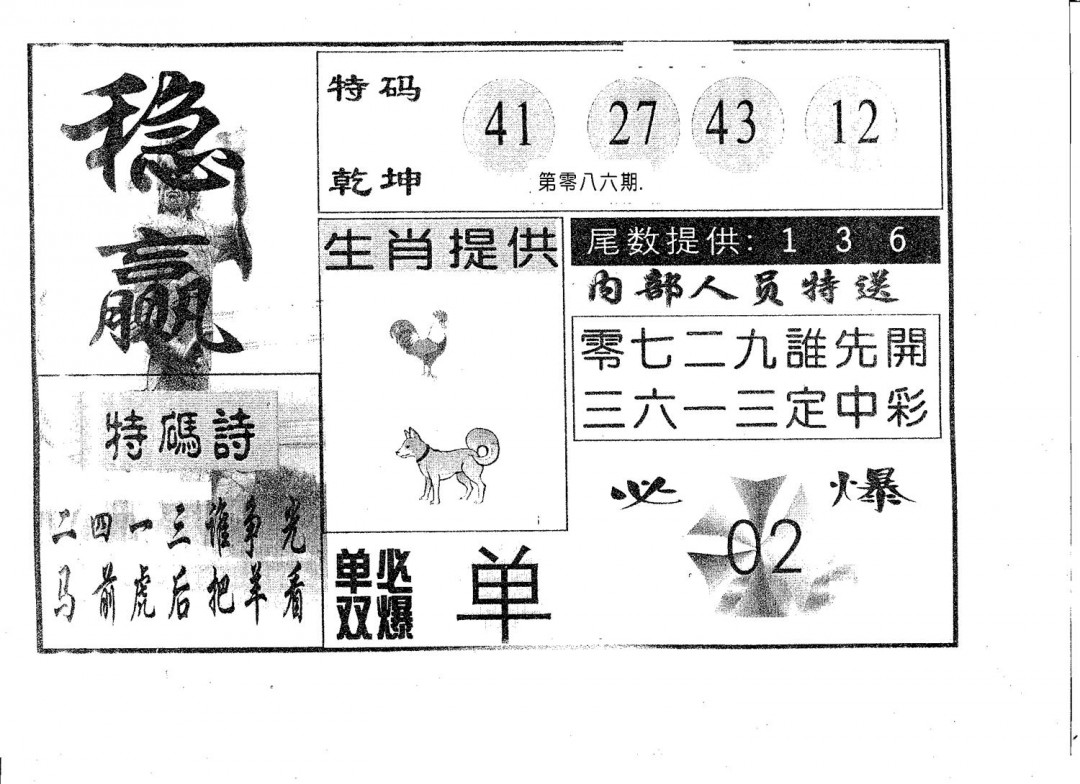 稳赢
特码
乾坤
41 27 43 12
第零八六期.
生肖提供
尾数提供: 1 3 6
内部人员特送
零七二九誰先開
三六一三定中彩
特碼詩
二四一三谁争光
马前虎后把羊看
单双必爆
单
必爆
02